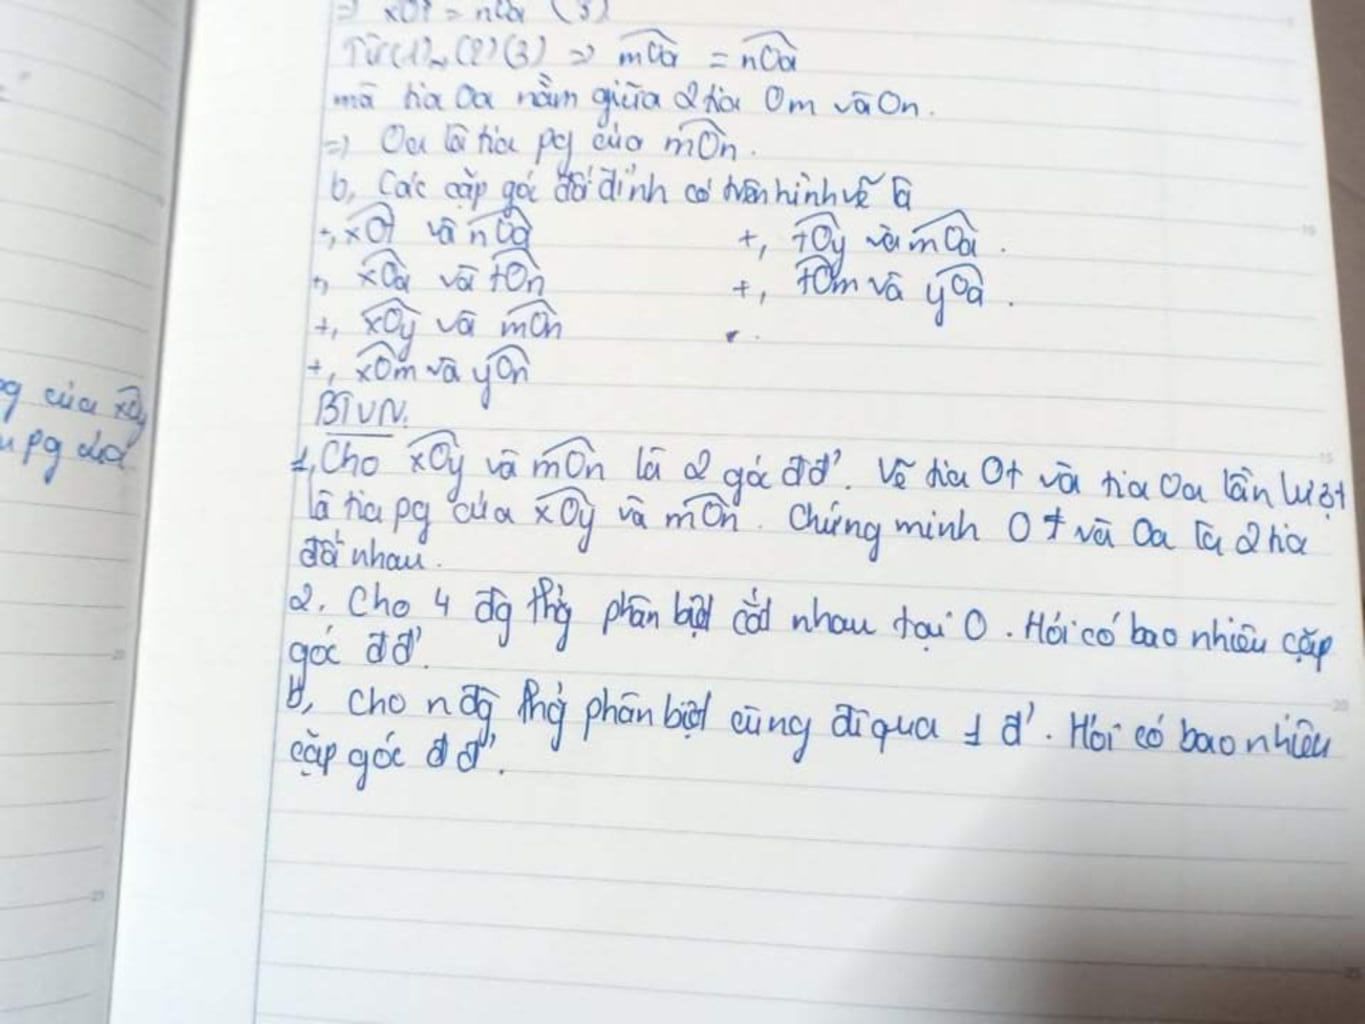 => xOt = nOa (3)
Từ (1), (2), (3) => mOa = nOa
mà tia Oa nằm giữa 2 tia Om và On.
=> Oa là tia pg của mOn.
b, Các cặp góc đối đỉnh có trên hình vẽ là
+, xOt và nOa +, tOy và mOa.
+, xOa và tOn +, tOm và yOa.
+, xOy và mOn
+, xOm và yOn
pg của xOy
pg của
BTVN.
1, Cho xOy và mOn là 2 góc đđ'. Vẽ tia Ot và tia Oa lần lượt
là tia pg của xOy và mOn. Chứng minh Ot và Oa là 2 tia
đối nhau.
2. Cho 4 đg thg phân biệt cắt nhau tại O. Hỏi có bao nhiêu cặp
góc đđ'.
b, Cho n đg thg phân biệt cùng đi qua 1 đ'. Hỏi có bao nhiêu
cặp góc đđ'.